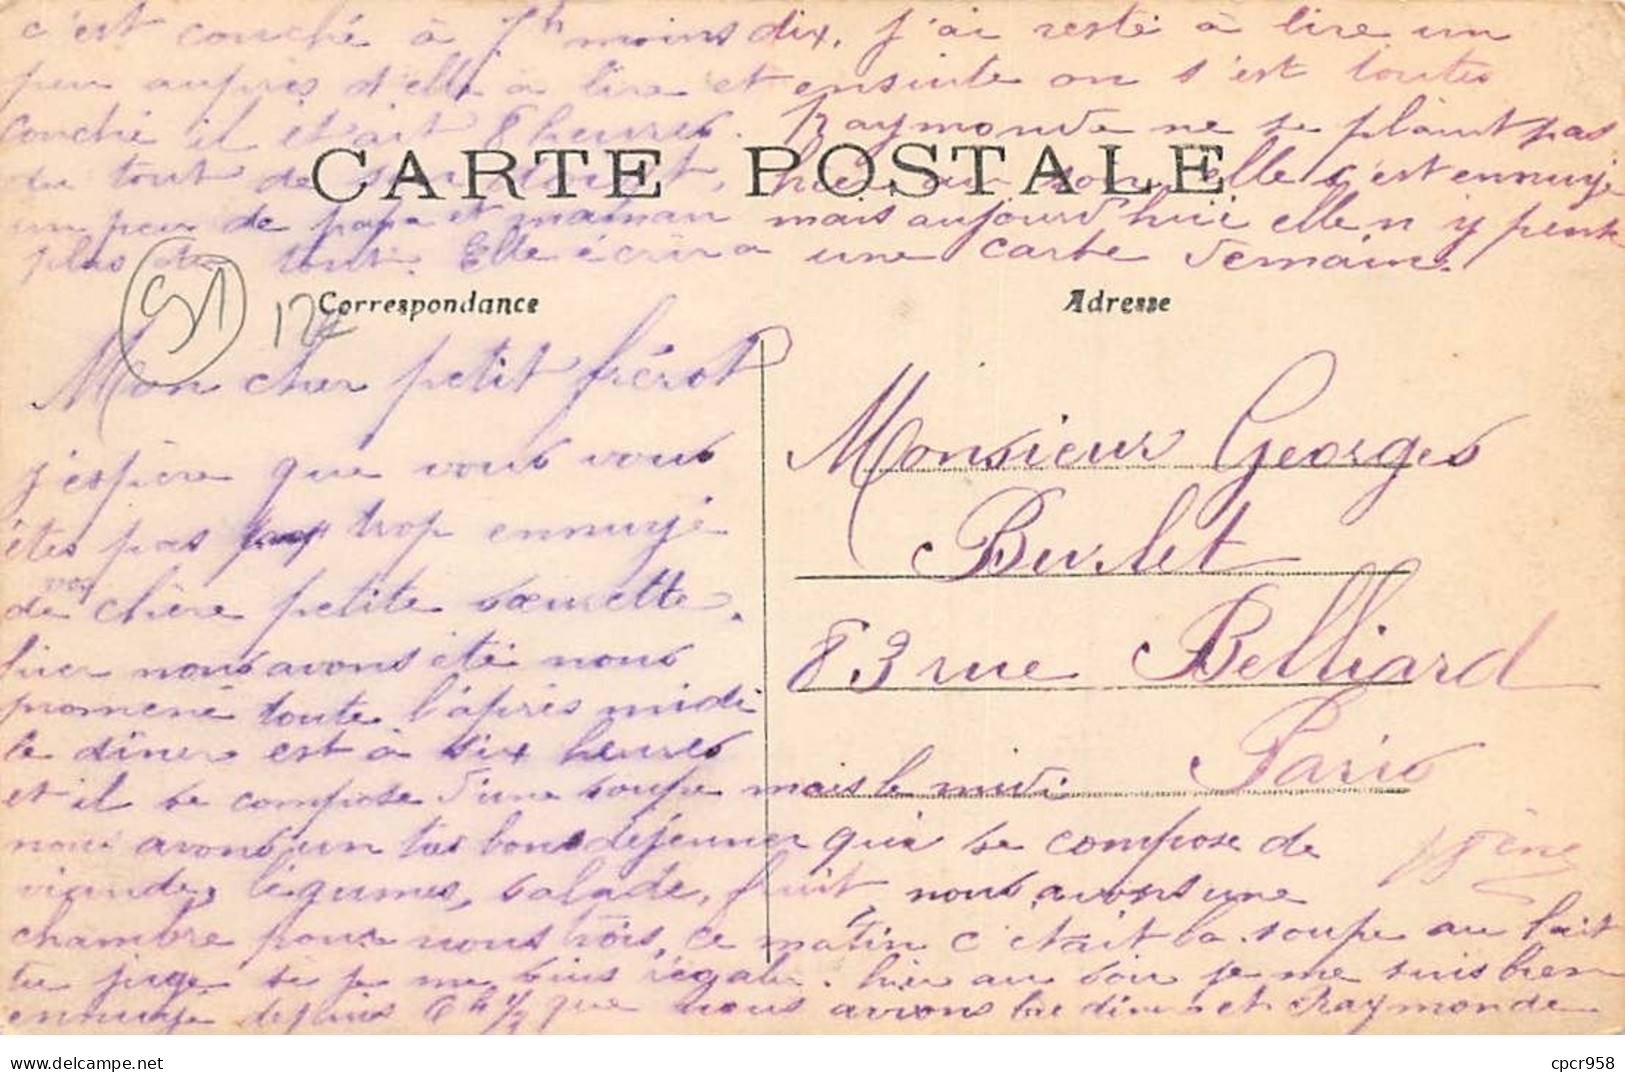 c'est couché à 7h moins dix, j'ai resté à lire un
peu auprès d'elle à lire et ensuite on s'est toutes
couché il était 8 heures. Raymonde ne se plaint pas
du tout de son douet, hier au soir elle s'est ennuyé
un peu de papa et maman mais aujourd'hui elle n'y pense
plus du tout. Elle écrira une carte demain.
CARTE POSTALE
51
Correspondance
Adresse
Mon cher petit frérot
j'espère que vous vous
êtes pas trop ennuyé
de moy chère petite sœurette.
hier nous avons été nous
promené toute l'après midi
le dîner est à six heures
et il se compose d'une soupe mais le midi
nous avons un tres bons déjeuner qui se compose de
viande, légumes, salade, fruit, nous avons une
chambre pour nous trois, ce matin c'était la soupe au lait
tu juge si je me suis régaler. hier au soir je me suis bien
ennuyé depuis 6h 1/2 que nous avions fini de diner et Raymonde
Monsieur Georges
Burlet
83 rue Belliard
Paris
18ème
https://www.delcampe.net
cpcr958